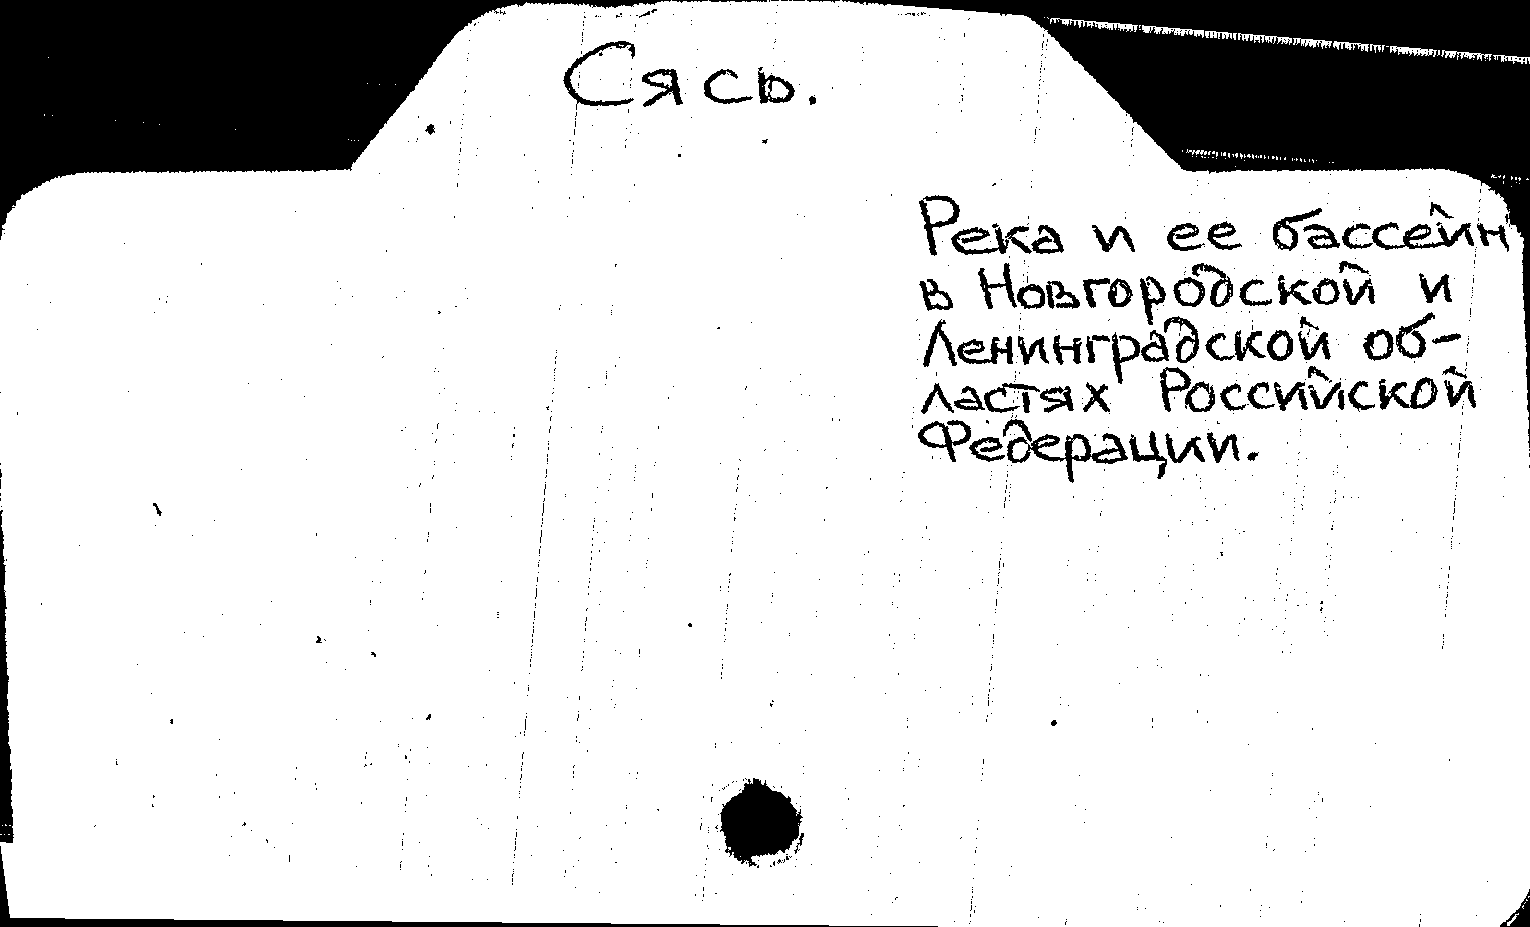 Сясь.
Река и ее бассейн
в Новгородской и
Ленинградской об-
ластях Российской
Федерации.